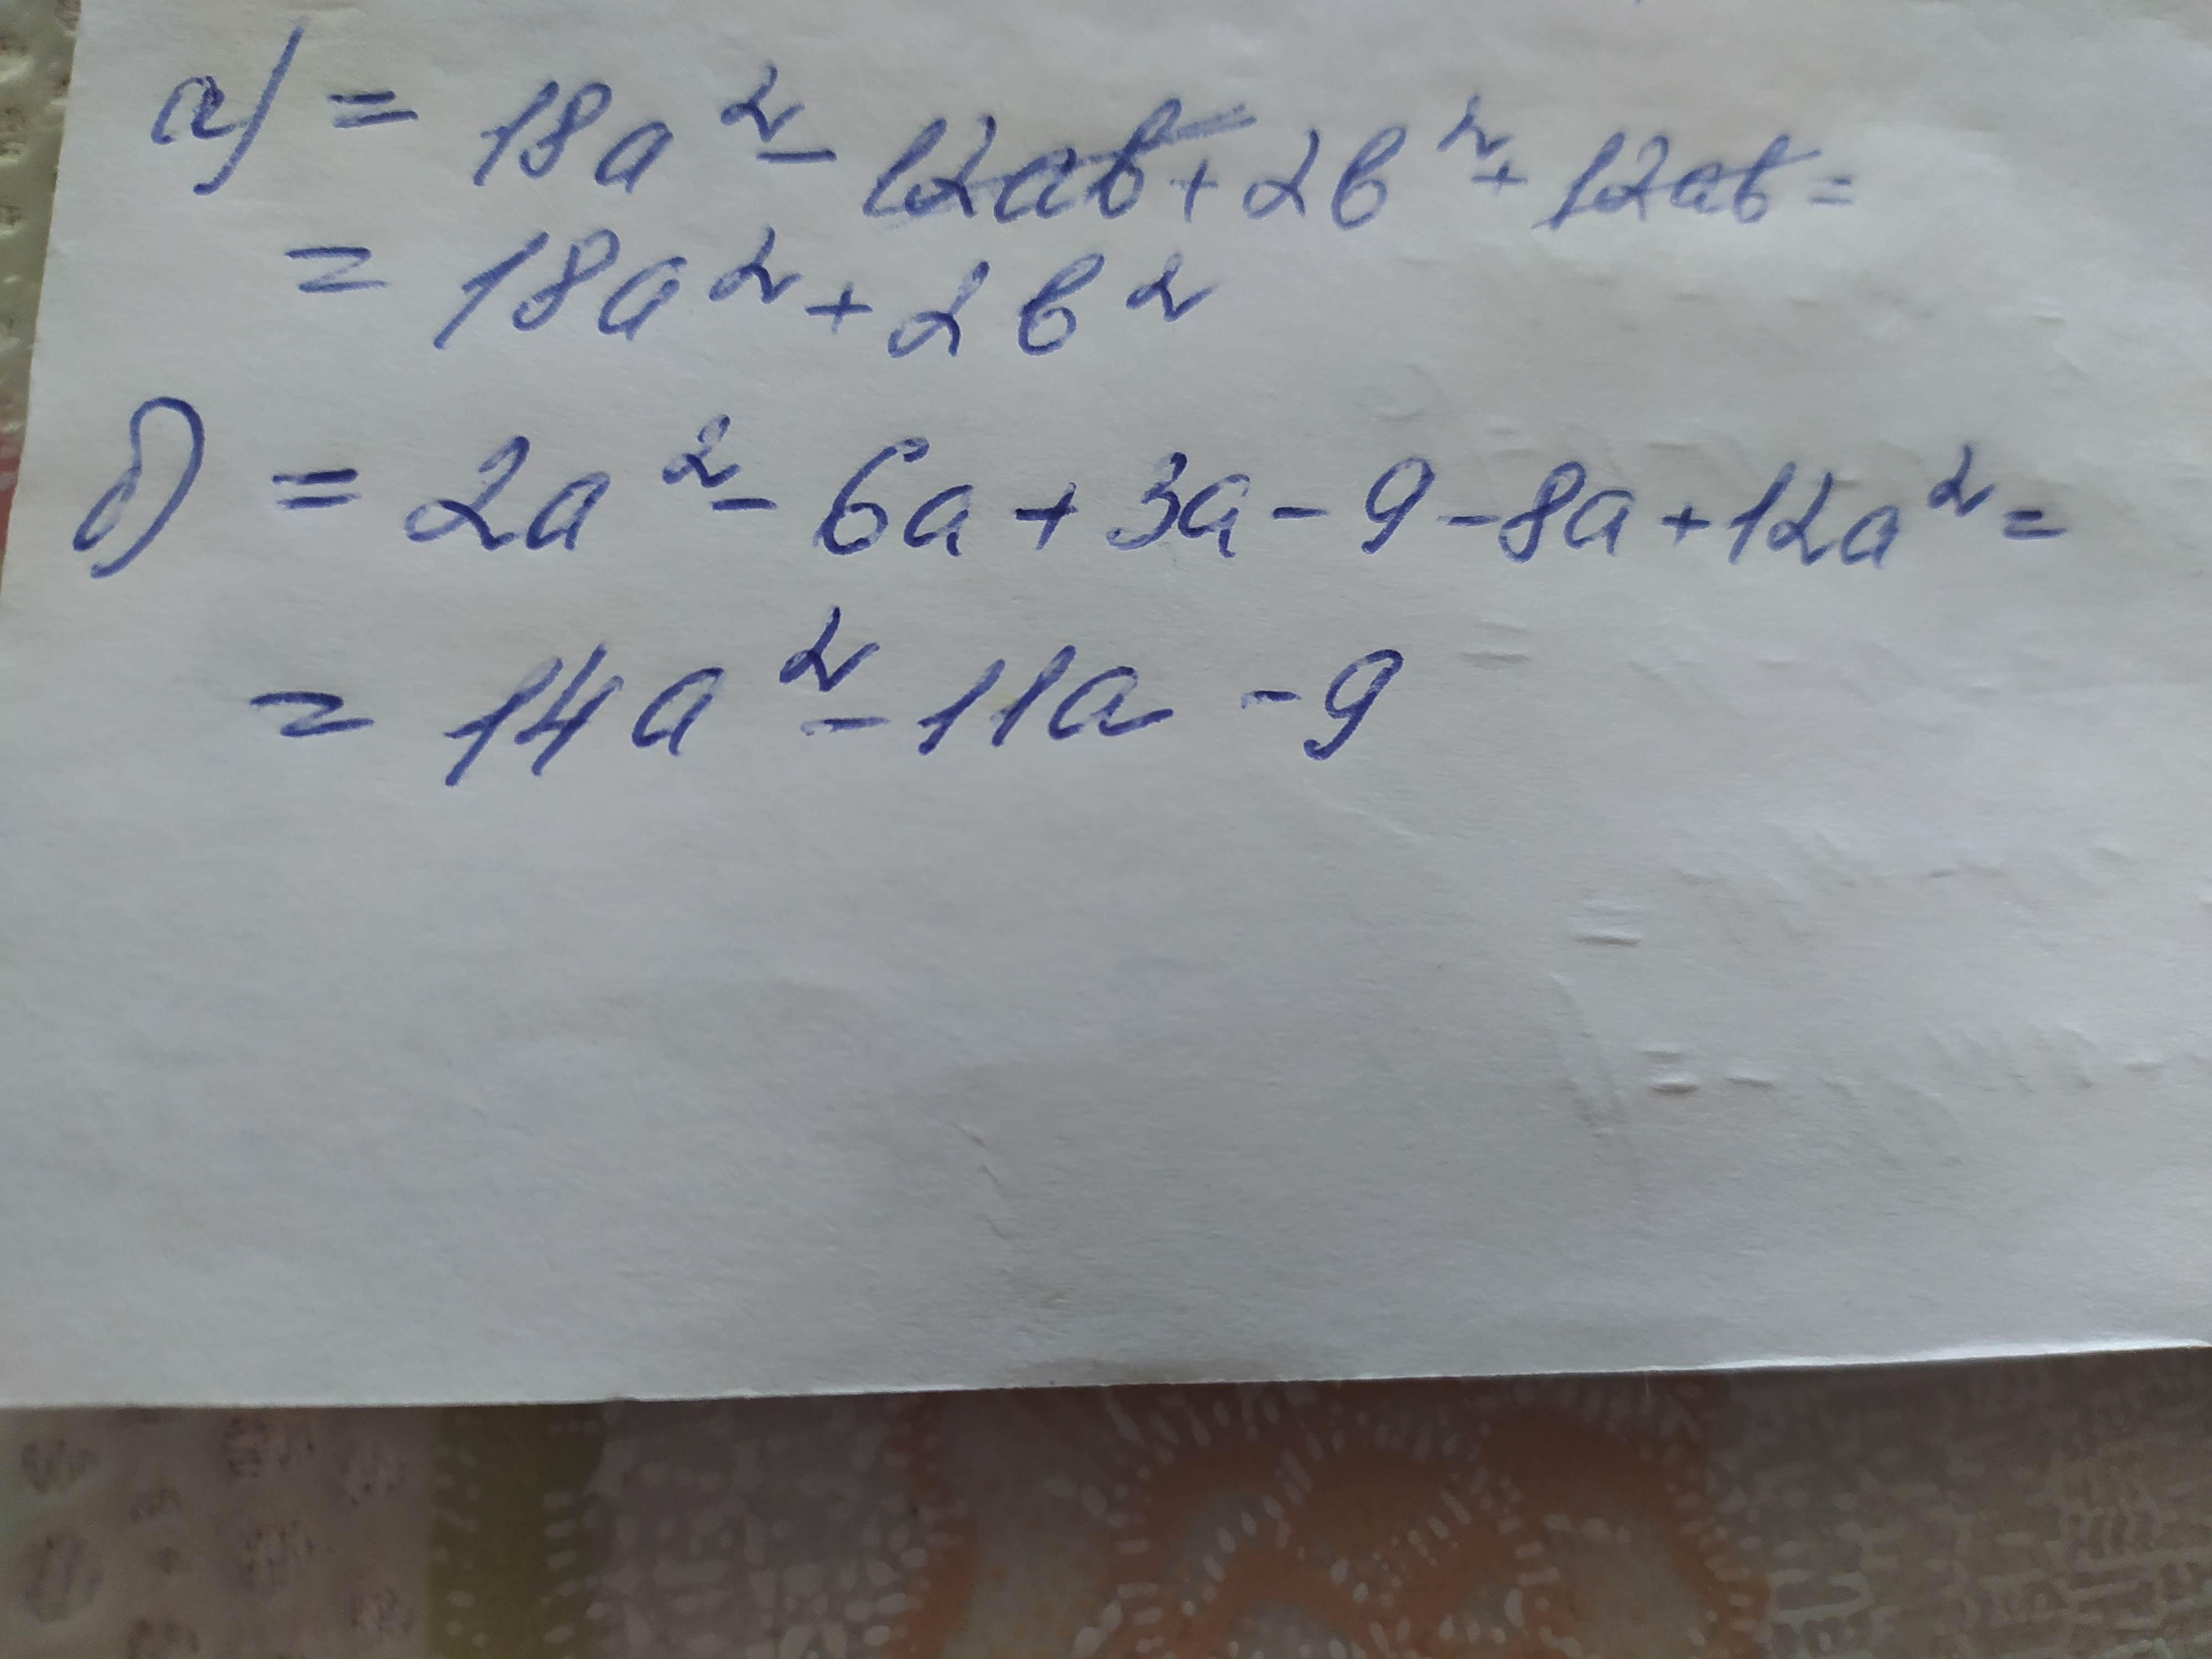 а) = 18a² - 12ab + 2b² + 12ab =
= 18a² + 2b²
б) = 2a² - 6a + 3a - 9 - 8a + 12a² =
= 14a² - 11a - 9